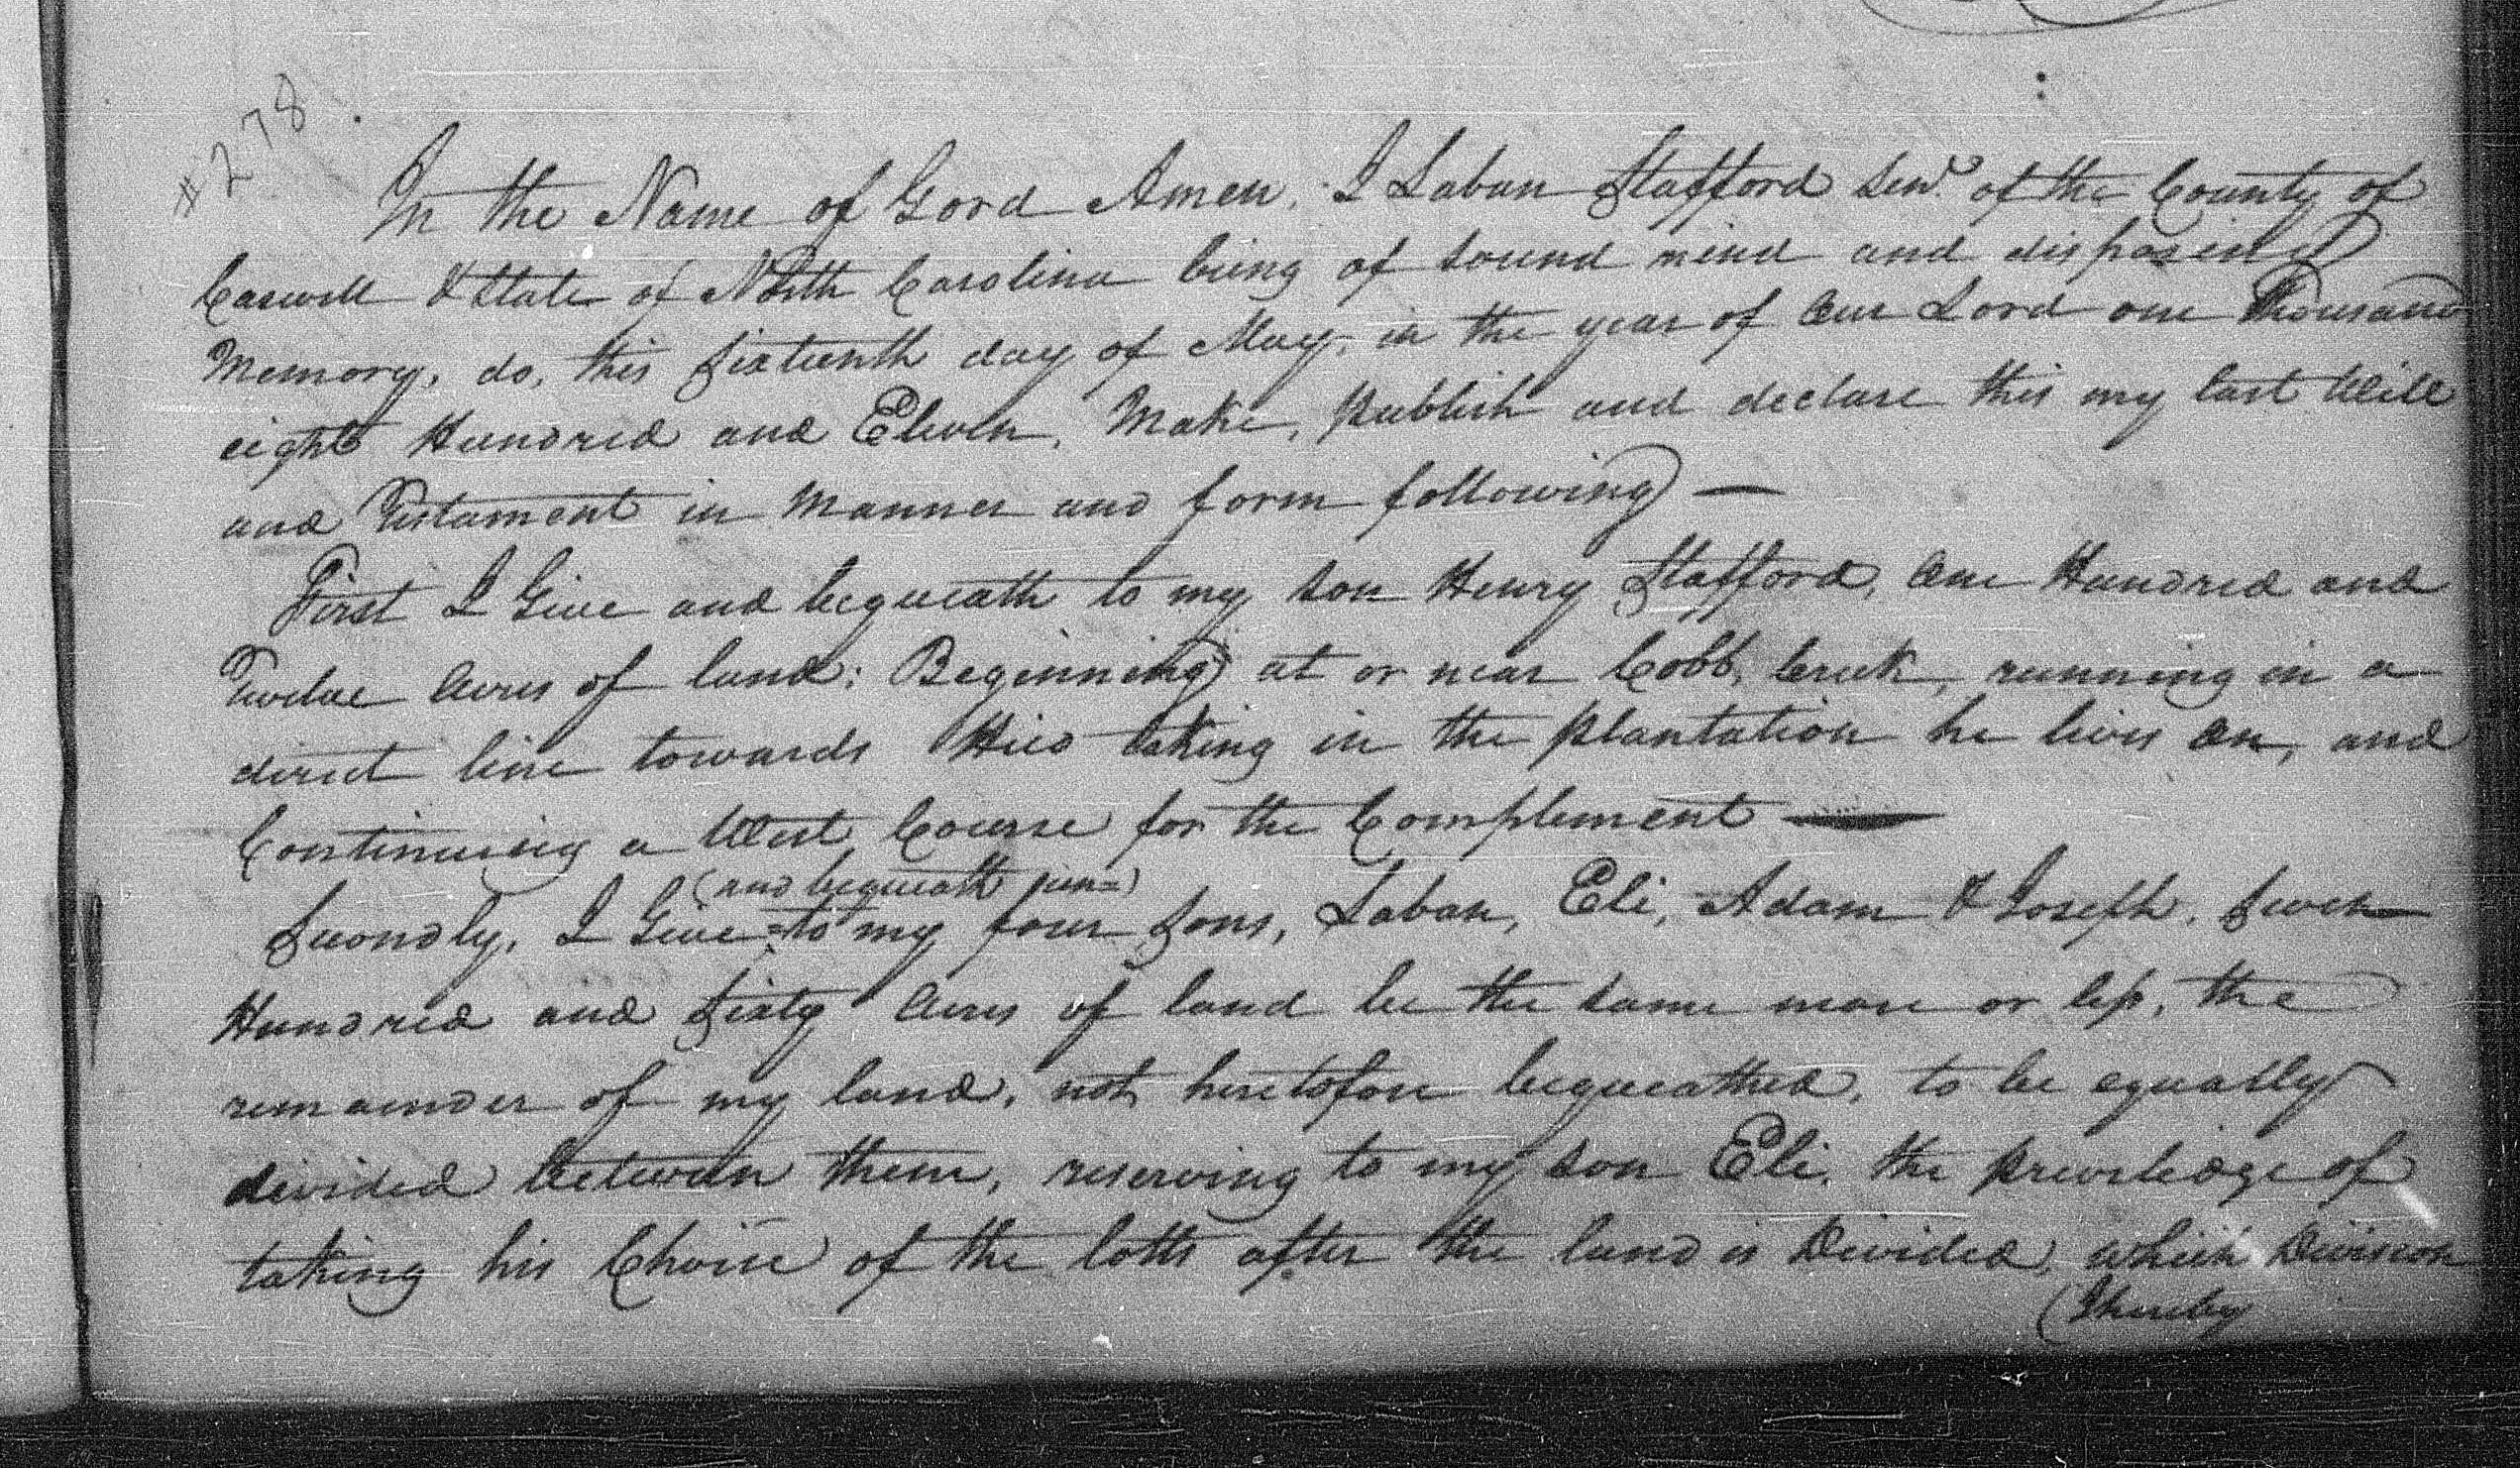 #278
In the Name of Gord Amen, I Laban Stafford Senr. of the County of
Caswell & State of North Carolina being of sound mind and disposing
Memory, do, this Sixteenth day of May, in the year of Our Lord one Thousand
eight Hundred and Eleven, Make, publish and declare this my last Will
and Testament in manner and form following —
First I Give and bequeath to my son Henry Stafford, One Hundred and
Twelve Acres of land; Beginning at or near Cobb, Creek, running in a
direct line towards Hico taking in the plantation he lives on, and
Continuing a West, Course for the Complement —
(and bequeath
Secondly, I Give to my four Sons, Laban, Eli, Adam & Joseph, Seven
Hundred and Sixty Acres of land be the same more or less, the
remainder of my land, not heretofore bequeathed, to be equally
divided between them, reserving to my son Eli, the priviledge of
taking his Choice of the lotts after the land is Divided, which Division
(Thereby